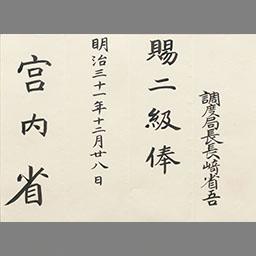 調度局長長﨑省吾
賜二級俸
明治三十一年十二月廿八日
宮内省